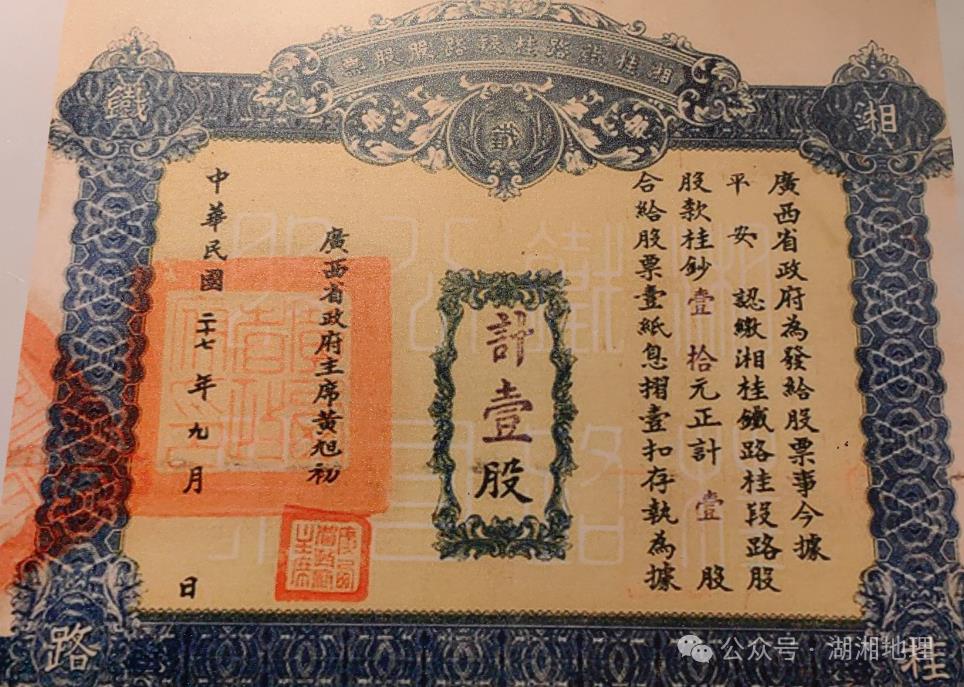 湘桂鐵路桂段路股股票
湘
桂
鐵
路
廣西省政府為發給股票事今據
平安 認繳湘桂鐵路桂段路股
股款桂鈔壹拾元正計壹股
合給股票壹紙息摺壹扣存執為據
計壹股
廣西省政府主席黃旭初
中華民國二十七年九月 日
公众号 · 湖湘地理